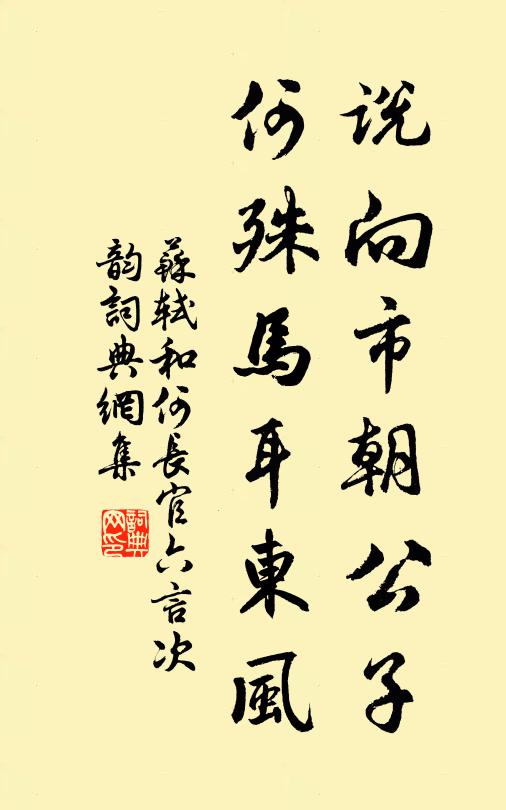 説向市朝公子
何殊馬耳東風
蘇軾和何長官六言次
韵詞典網集
詞典
网印